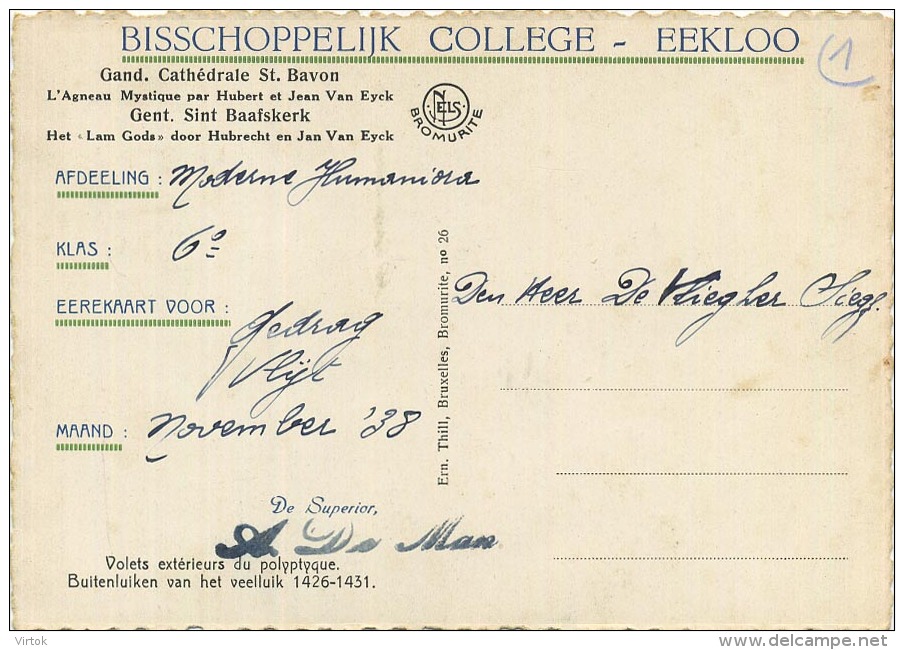 BISSCHOPPELIJK COLLEGE - EEKLOO
1
Gand. Cathédrale St. Bavon
L'Agneau Mystique par Hubert et Jean Van Eyck
Gent. Sint Baafskerk
Het «Lam Gods» door Hubrecht en Jan Van Eyck
NELS
BROMURITE
AFDEELING : Moderne Humaniora
KLAS : 6e
EEREKAART VOOR :
Gedrag
Vlijt
MAAND : November '38
De Superior,
A. De Man
Volets extérieurs du polyptyque.
Buitenluiken van het veelluik 1426-1431.
Ern. Thill, Bruxelles, Bromurite, no 26
Den Heer De Vliegher
Virtok
delcampe.net